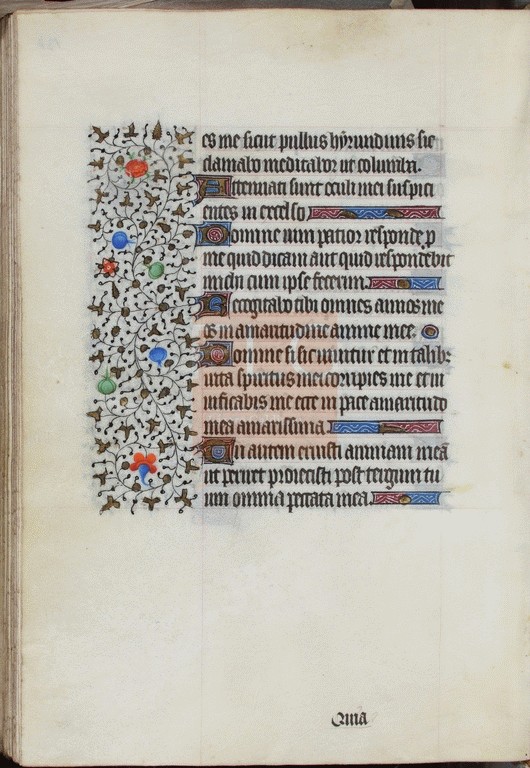 es me sicut pullus hyrundinis sic
clamabo meditabor ut columba.
Attenuati sunt oculi mei suspici
entes in excelso
Domine uim patior responde p
me quid dicam aut quid respondebit
michi cum ipse fecerim
Recogitabo tibi omnes annos me
os in amaritudine anime mee.
Domine si sic uiuitur et in talibz
uita spiritus mei corripies me et ui
uificabis me ecce in pace amaritudo
mea amarissima
Tu autem eruisti animam meā
ut periret proiecisti post tergum tu
um omnia peccata mea.
Quia